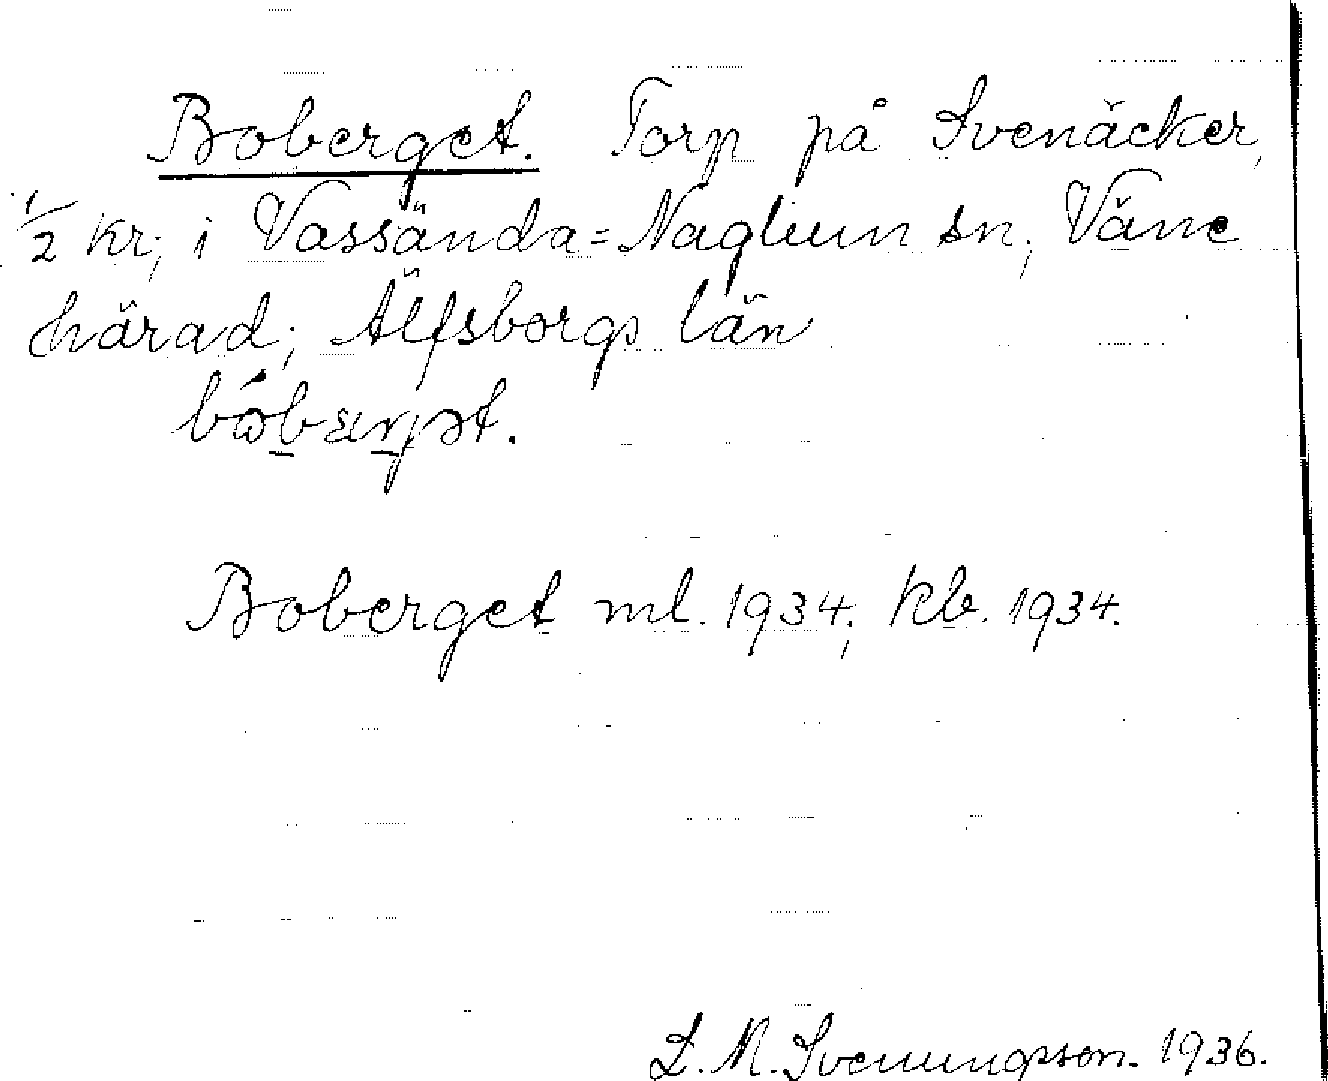 Boberget. Torp på Svenäcker,
1/2 kr; i Vassända=Naglum sn; Väne
härad; Älfsborgs län
Boberget ml. 1934; kb. 1934.
L. M. Svenungsson. 1936.